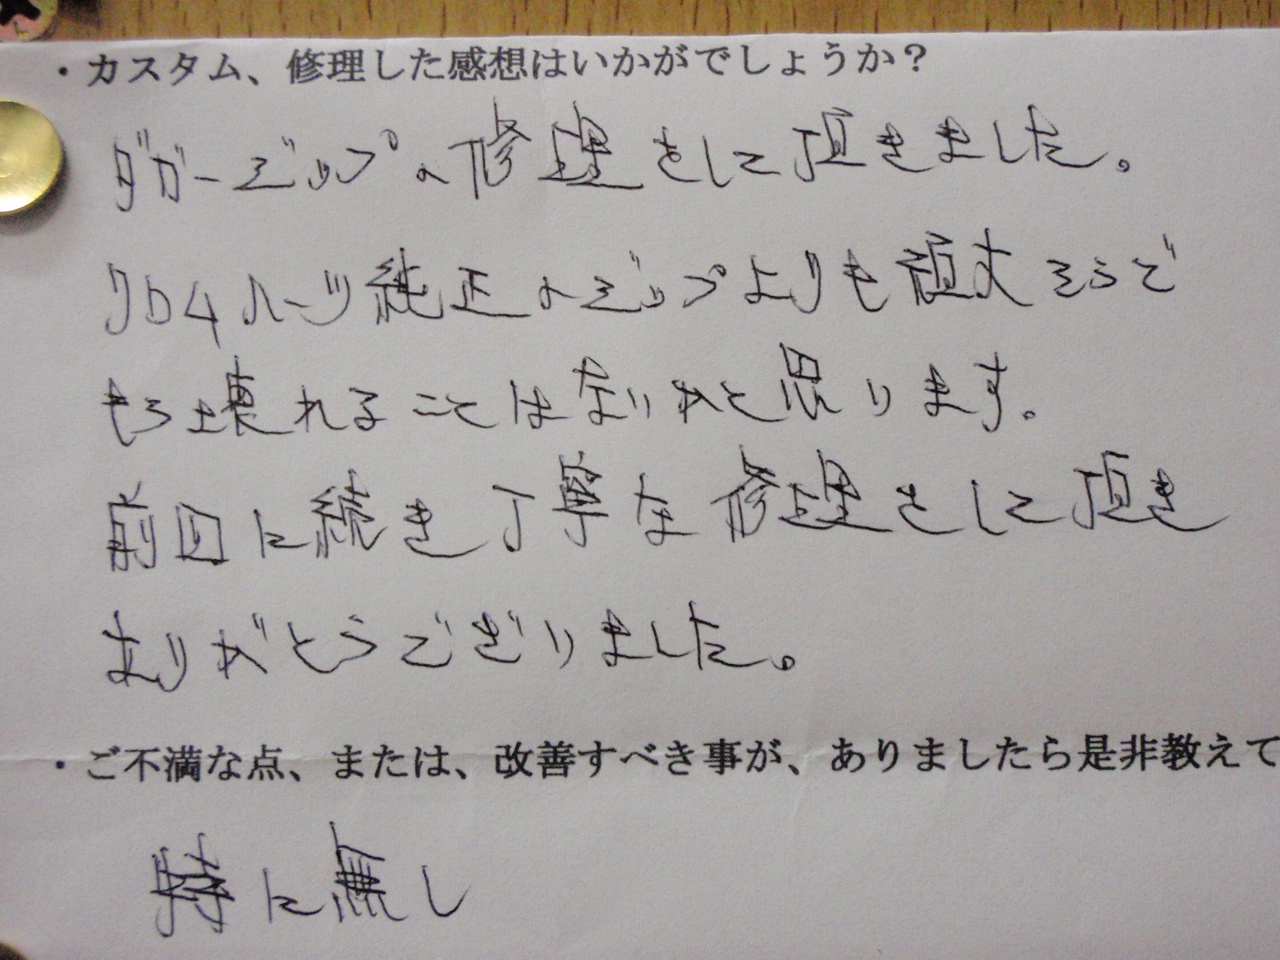 ・カスタム、修理した感想はいかがでしょうか？
ダガージップの修理をして頂きました。
クロムハーツ純正のジップよりも頑丈そうで
もう壊れることはないかと思います。
前回に続き丁寧な修理をして頂き
ありがとうございました。
・ご不満な点、または、改善すべき事が、ありましたら是非教えて
特に無し